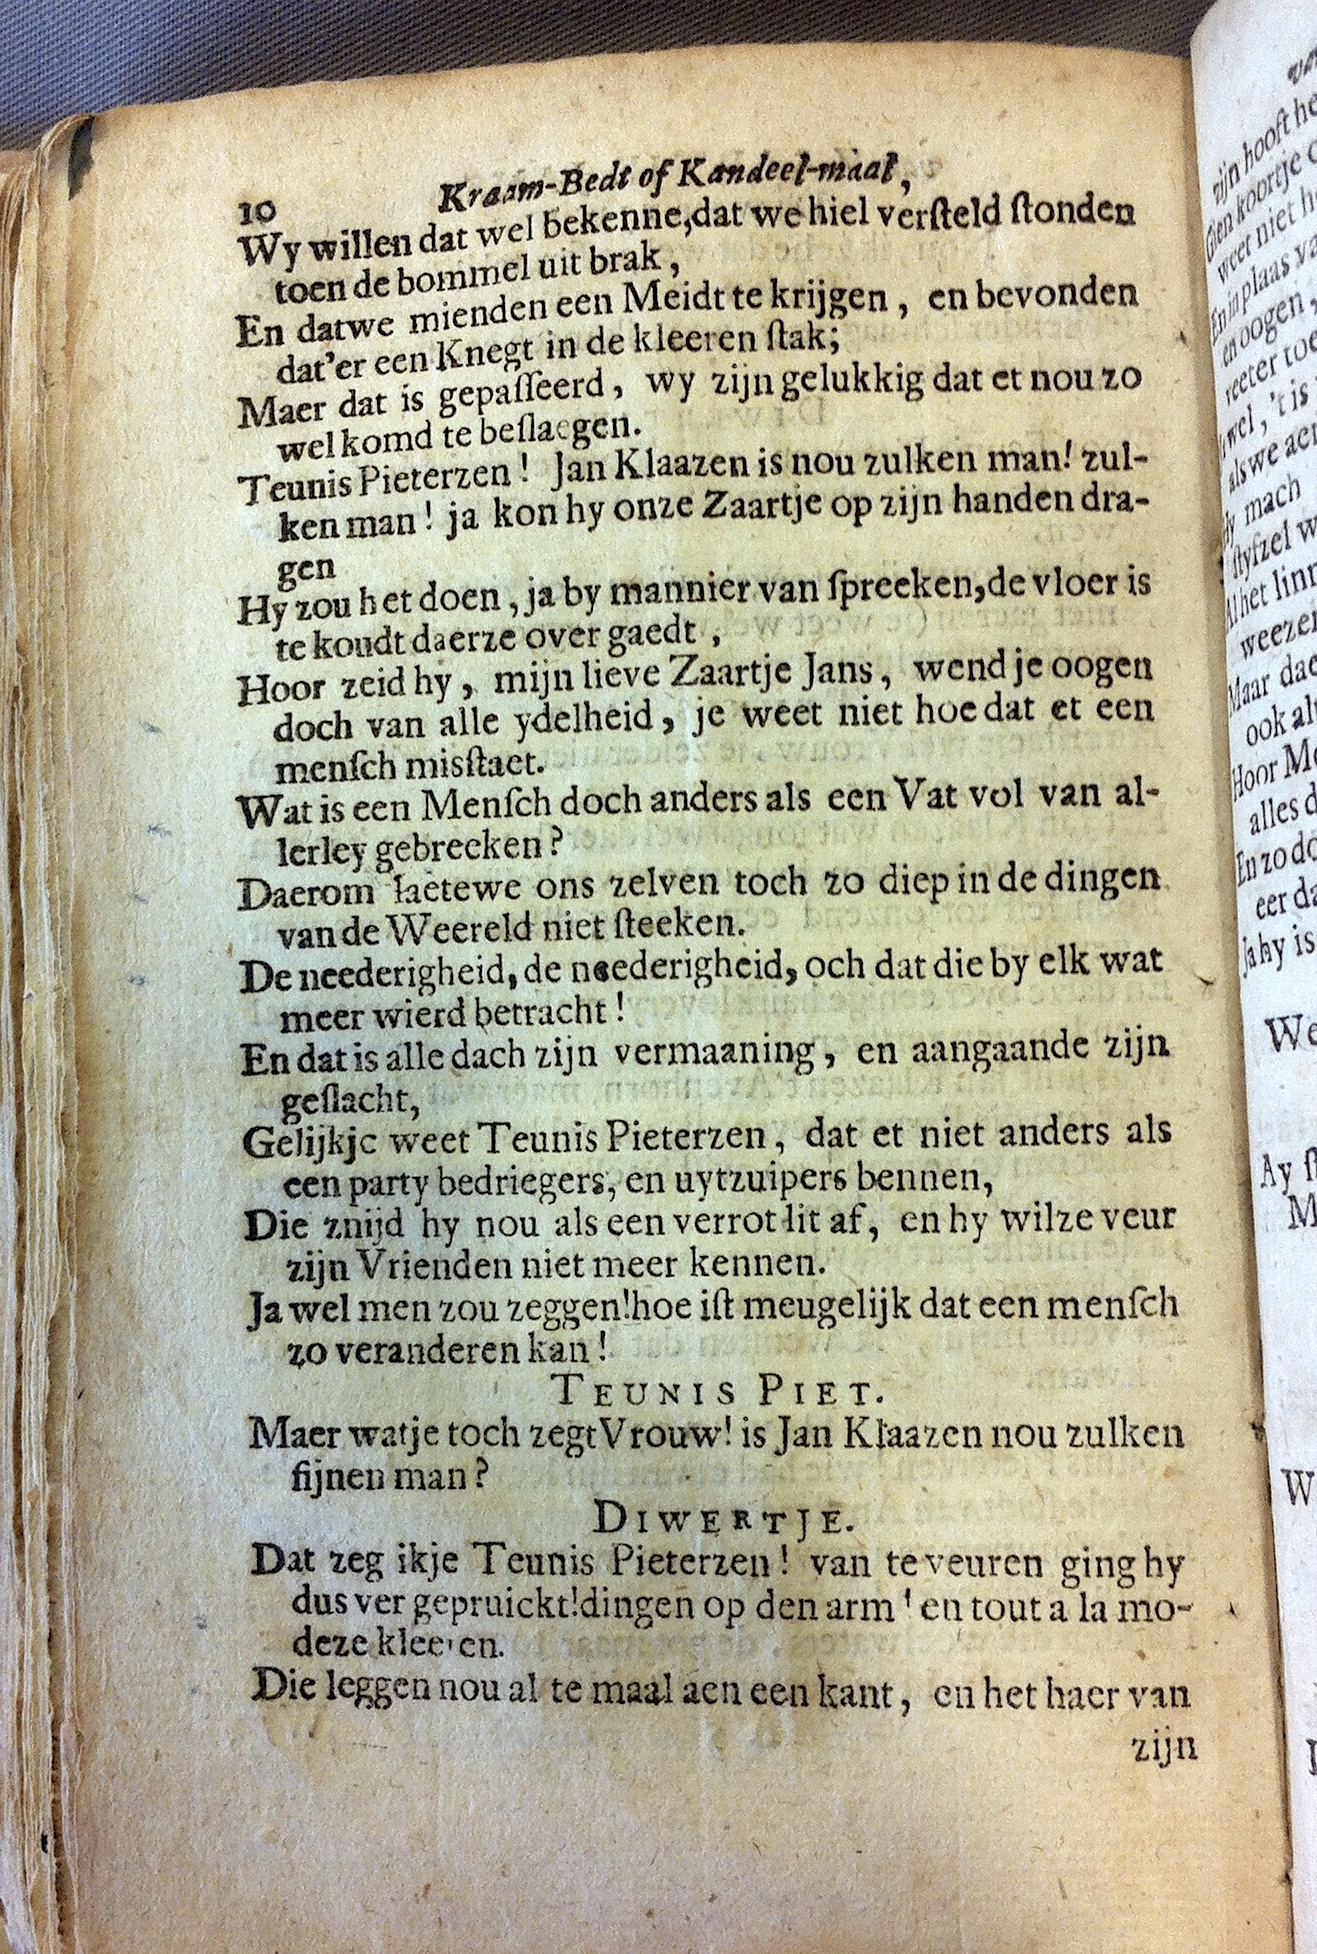 10 Kraam-Bedt of Kandeel-maal,
Wy willen dat wel bekenne,dat we hiel verſteld ſtonden
toen de bommel uit brak,
En datwe mienden een Meidt te krijgen, en bevonden
dat'er een Knegt in de kleeren ſtak;
Maer dat is gepaſſeerd, wy zijn gelukkig dat et nou zo
wel komd te beſlaegen.
Teunis Pieterzen! Jan Klaazen is nou zulken man! zul-
ken man! ja kon hy onze Zaartje op zijn handen dra-
gen
Hy zou het doen, ja by mannier van ſpreeken,de vloer is
te koudt daerze over gaedt,
Hoor zeid hy, mijn lieve Zaartje Jans, wend je oogen
doch van alle ydelheid, je weet niet hoe dat et een
menſch misſtaet.
Wat is een Menſch doch anders als een Vat vol van al-
lerley gebreeken?
Daerom laetewe ons zelven toch zo diep in de dingen
van de Weereld niet ſteeken.
De neederigheid, de neederigheid, och dat die by elk wat
meer wierd betracht!
En dat is alle dach zijn vermaaning, en aangaande zijn
geſlacht,
Gelijkje weet Teunis Pieterzen, dat et niet anders als
een party bedriegers, en uytzuipers bennen,
Die znijd hy nou als een verrot lit af, en hy wilze veur
zijn Vrienden niet meer kennen.
Ja wel men zou zeggen!hoe iſt meugelijk dat een menſch
zo veranderen kan!
TEUNIS PIET.
Maer watje toch zegt Vrouw! is Jan Klaazen nou zulken
fijnen man?
DIWERTJE.
Dat zeg ikje Teunis Pieterzen! van te veuren ging hy
dus ver gepruickt!dingen op den arm! en tout a la mo-
deze kleeren.
Die leggen nou al te maal aen een kant, en het haer van
zijn
zijn hooft he
weet niet h
En in plaas va
en oogen,
wel, 't is
als we aen
mach
Al het linn
weezen
Maar dae
ook alt
Hoor Me
alles d
En zo do
eer da
Ja hy is
We
Ay ſt
M
W